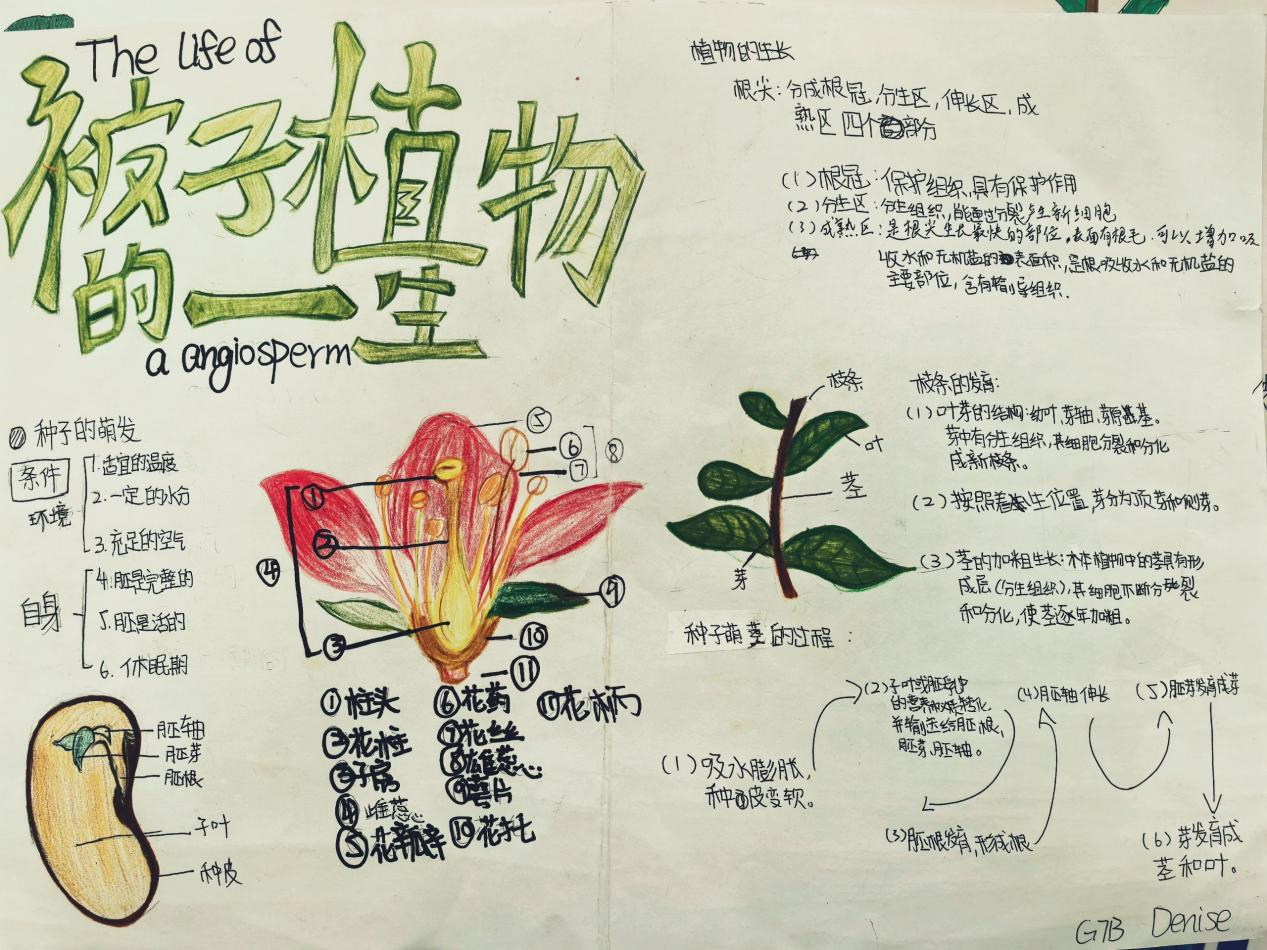 The life of
被子植物
的一生
a angiosperm
种子的萌发
条件
环境
1. 适宜的温度
2. 一定的水分
3. 充足的空气
自身
4. 胚是完整的
5. 胚是活的
6. 休眠期
胚轴
胚芽
胚根
子叶
种皮
①
②
③
④
⑤
⑥
⑦
⑧
⑨
⑩
11
① 柱头
② 花柱
③ 子房
④ 雌蕊
⑤ 花瓣
⑥ 花药
⑦ 花丝
⑧ 雄蕊
⑨ 萼片
⑩ 花托
⑪ 花柄
植物的生长
根尖：分成根冠，分生区，伸长区，成
熟区四个部分
(1) 根冠：保护组织，具有保护作用
(2) 分生区：分生组织，能通过分裂产生新细胞
(3) 成熟区：是根尖生长最快的部位。表面有根毛，可以增加吸
收水和无机盐的表面积，是根吸收水和无机盐的
主要部位，含有输导组织.
枝条
叶
茎
芽
枝条的发育：
(1) 叶芽的结构：幼叶，芽轴，芽原基。
芽中有分生组织，其细胞分裂和分化
成新枝条。
(2) 按照着生位置，芽分为顶芽和侧芽。
(3) 茎的加粗生长：木本植物中的茎具有形
成层(分生组织)，其细胞不断分裂
和分化，使茎逐年加粗。
种子萌茎的过程：
(1) 吸水膨胀，
种皮变软。
(2) 子叶或胚乳中
的营养物质转化
并输送给胚根，
胚芽、胚轴。
(3) 胚根发育，形成根
(4) 胚轴伸长
(5) 胚芽发育成芽
(6) 芽发育成
茎和叶。
G7B Denise